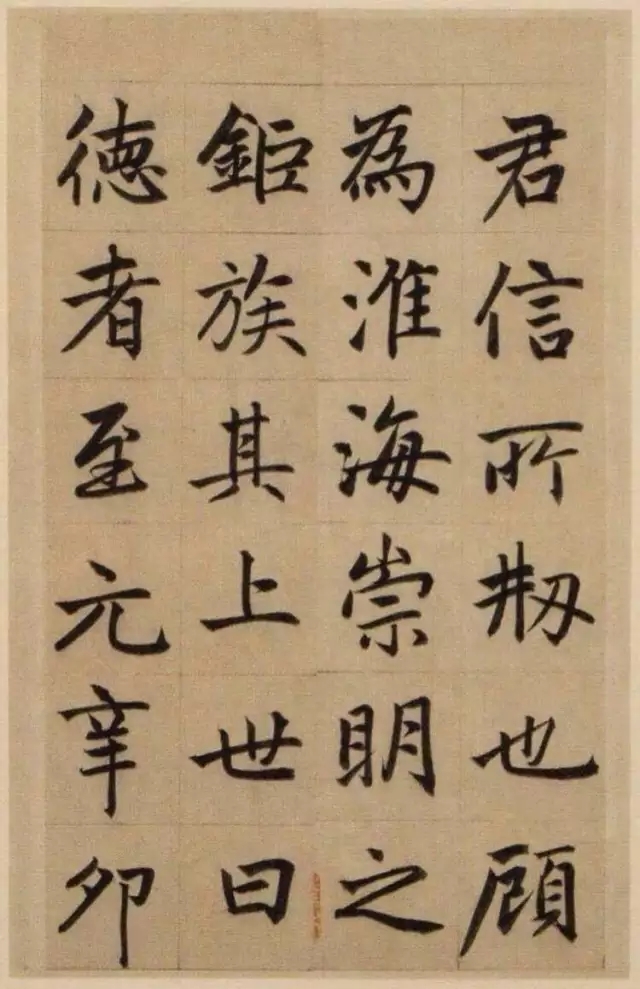 君信所刱也顧
為淮海崇明之
鉅族其上世曰
徳者至元辛卯